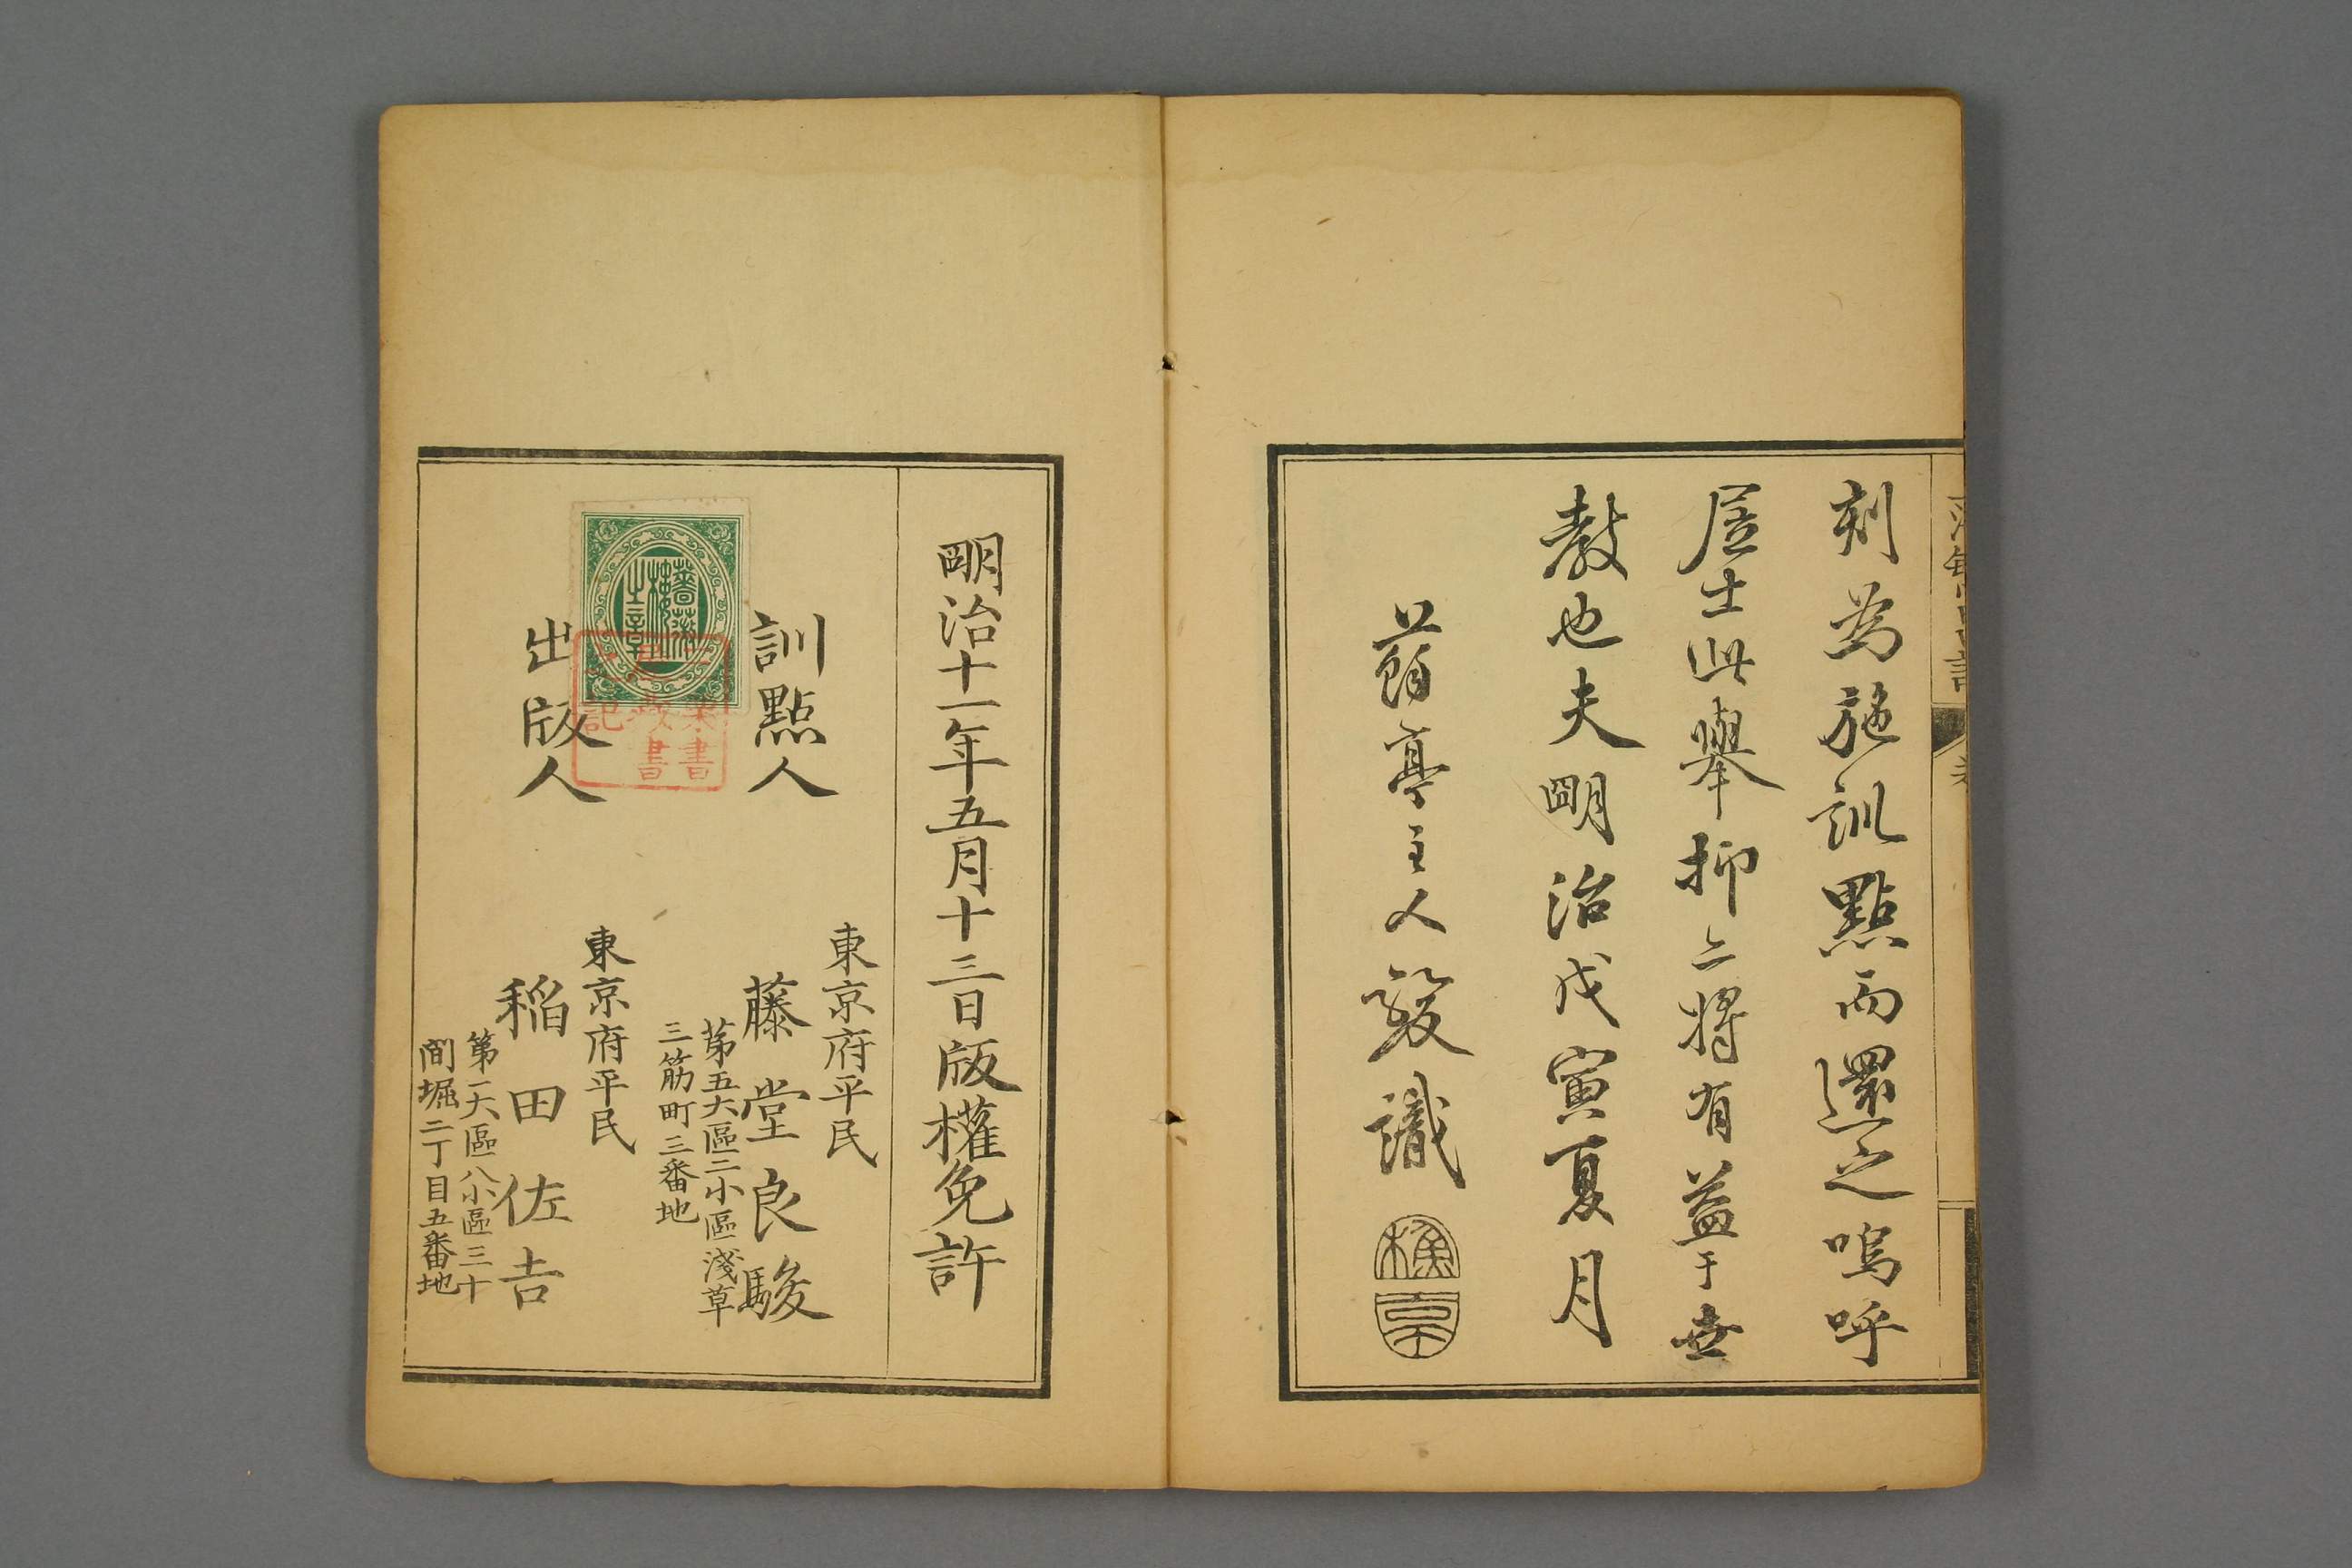 刻為施訓點而還之嗚呼
居士此舉抑亦將有益于世
教也夫明治戊寅夏月
亭主人駿識
明治十一年五月十三日版權免許
訓點人
東京府平民
藤堂良駿
第五大區二小區淺草
三筋町三番地
出版人
東京府平民
稲田佐吉
第一大區八小區三十
間堀二丁目五番地